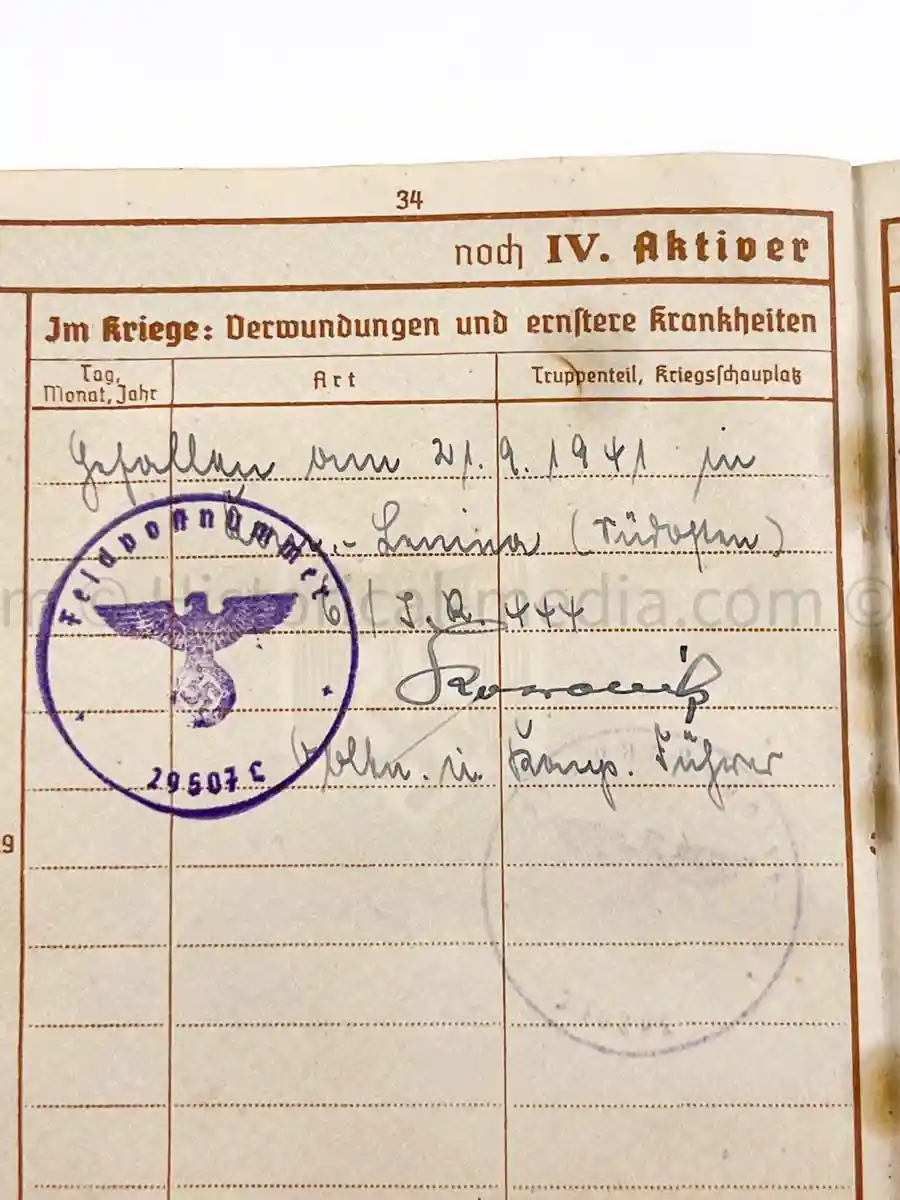 34
noch IV. Aktiver
Im Kriege: Verwundungen und ernstere Krankheiten
Tag, Monat, Jahr
Art
Truppenteil, Kriegsschauplatz
Gefallen am 21.9.1941 in
-Lenina (Südosten)
6/J.R. 444
Obltn. u. Komp. Führer
Feldpostnummer
29507 C
9
m © Historicalmedia.com ©